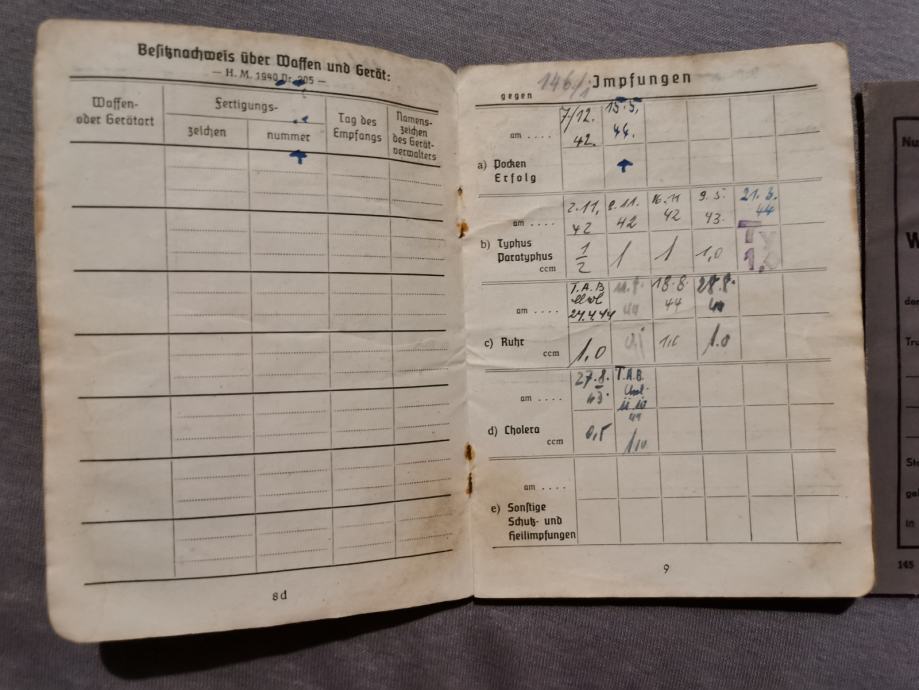 Besitznachweis über Waffen und Gerät:
— H. M. 1940 Nr. 205 —
Waffen-
oder Gerätart
Fertigungs-
zeichen
nummer
Tag des
Empfangs
Namens-
zeichen
des Gerät-
verwalters
8d
146/
Impfungen
gegen
7/12. 15.5.
am .... 42. 44.
a) Pocken
Erfolg
2.11, 9.11. 16.11 9.5. 21.3.
am .... 42 42 42 43. 44
b) Typhus
Paratyphus
ccm 1/2 1 1 1,0
T.A.B 18.8. 28.8.
am .... 27.4.44 44 44
c) Ruhr
ccm 1,0 1,0 1.0
27.8. T.A.B.
am .... 43.
d) Cholera
ccm 0,5 1,0
am ....
e) Sonstige
Schutz- und
Heilimpfungen
9
Nu
W
Tru
Ste
gel
in
145